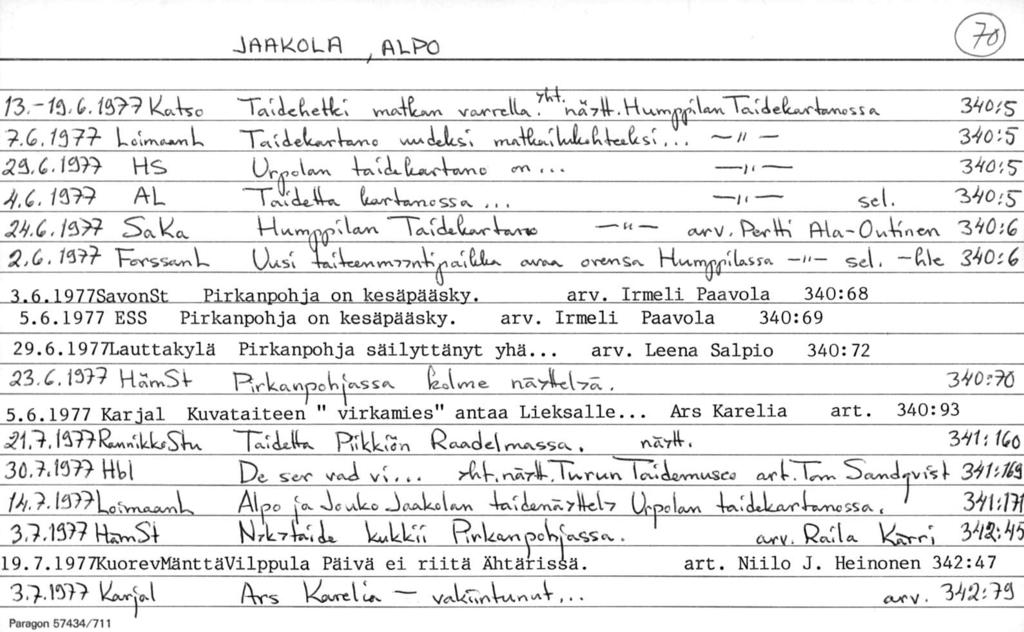 JAAKOLA, ALPO 70
13.-19.6.1977 Katso Taidehetki matkan varrella. yht. näytt. Humppilan Taidekartanossa 340:5
7.6.1977 LoimaanL Taidekartano uudeksi matkailukohteeksi... —"— 340:5
29.6.1977 HS Urpolan taidekartano on... —"— 340:5
4.6.1977 AL Taidetta kartanossa... —"— sel. 340:5
24.6.1977 SaKa Humppilan Taidekartano —"— arv. Pertti Ala-Outinen 340:6
2.6.1977 ForssanL Uusi taiteenmyyntipaikka avaa ovensa Humppilassa —"— sel. -hle 340:6
3.6.1977SavonSt Pirkanpohja on kesäpääsky. arv. Irmeli Paavola 340:68
5.6.1977 ESS Pirkanpohja on kesäpääsky. arv. Irmeli Paavola 340:69
29.6.1977Lauttakylä Pirkanpohja säilyttänyt yhä... arv. Leena Salpio 340:72
23.6.1977 HämSt Pirkanpohjassa kolme näyttelyä. 340:70
5.6.1977 Karjal Kuvataiteen " virkamies" antaa Lieksalle... Ars Karelia art. 340:93
21.7.1977 RannikkoStu Taidetta Piikkiön Raadelmassa. näytt. 341:160
30.7.1977 Hbl De ser vad vi... yht. näytt. Turun Taidemuseo art. Tom Sandqvist 341:169
14.7.1977 LoimaanL Alpo ja Jouko Jaakolan taidenäyttely Urpolan taidekartanossa. 341:171
3.7.1977 HämSt Nykytaide kukkii Pirkanpohjassa. arv. Raila Kärri 342:45
19.7.1977KuorevMänttäVilppula Päivä ei riitä Ähtärissä. art. Niilo J. Heinonen 342:47
3.7.1977 Karjal Ars Karelia — vakiintunut... arv. 342:79
Paragon 57434/711